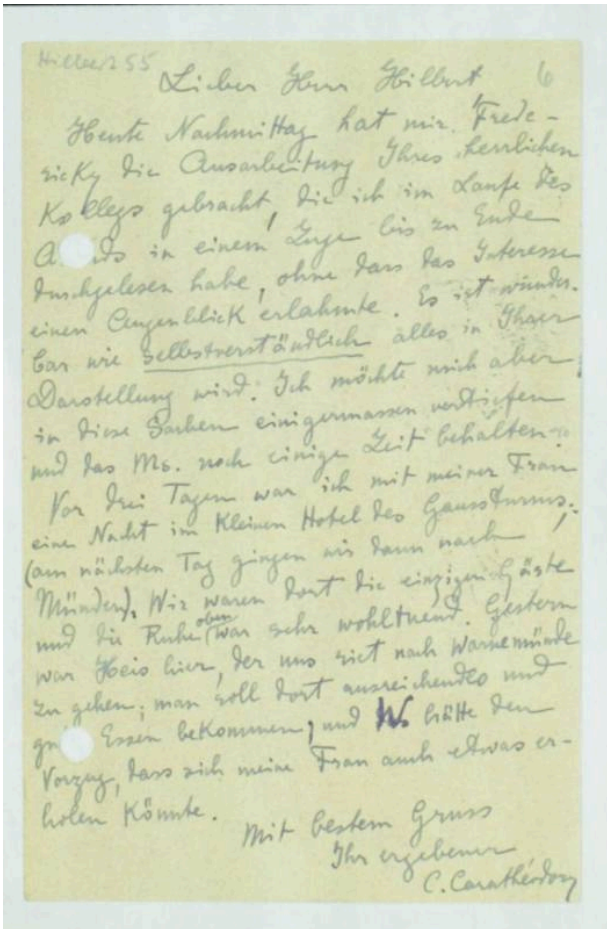 Hilbert 55
6
Lieber Herr Hilbert
Heute Nachmittag hat mir Frede-
ricky die Ausarbeitung Ihres herrlichen
Kollegs gebracht, die ich im Laufe des
A ds in einem Zuge bis zu Ende
durchgelesen habe, ohne dass das Interesse
einen Augenblick erlahmte. Es ist wunder-
bar wie selbstverständlich alles in Ihrer
Darstellung wird. Ich möchte mich aber
in diese Sachen einigermassen vertiefen
und das Ms. noch einige Zeit behalten.
Vor drei Tagen war ich mit meiner Frau
eine Nacht im kleinen Hotel des Gaussturms;
(am nächsten Tag gingen wir dann nach
Münden). Wir waren dort die einzigen Gäste
und die Ruhe oben war sehr wohltuend. Gestern
war hier, der uns riet nach Warnemünde
zu gehen; man soll dort ausreichendes und
gu Essen bekommen; und hätte den
Vorzug, dass sich meine Frau auch etwas er-
holen könnte.
Mit bestem Gruss
Ihr ergebener
C. Carathéodory